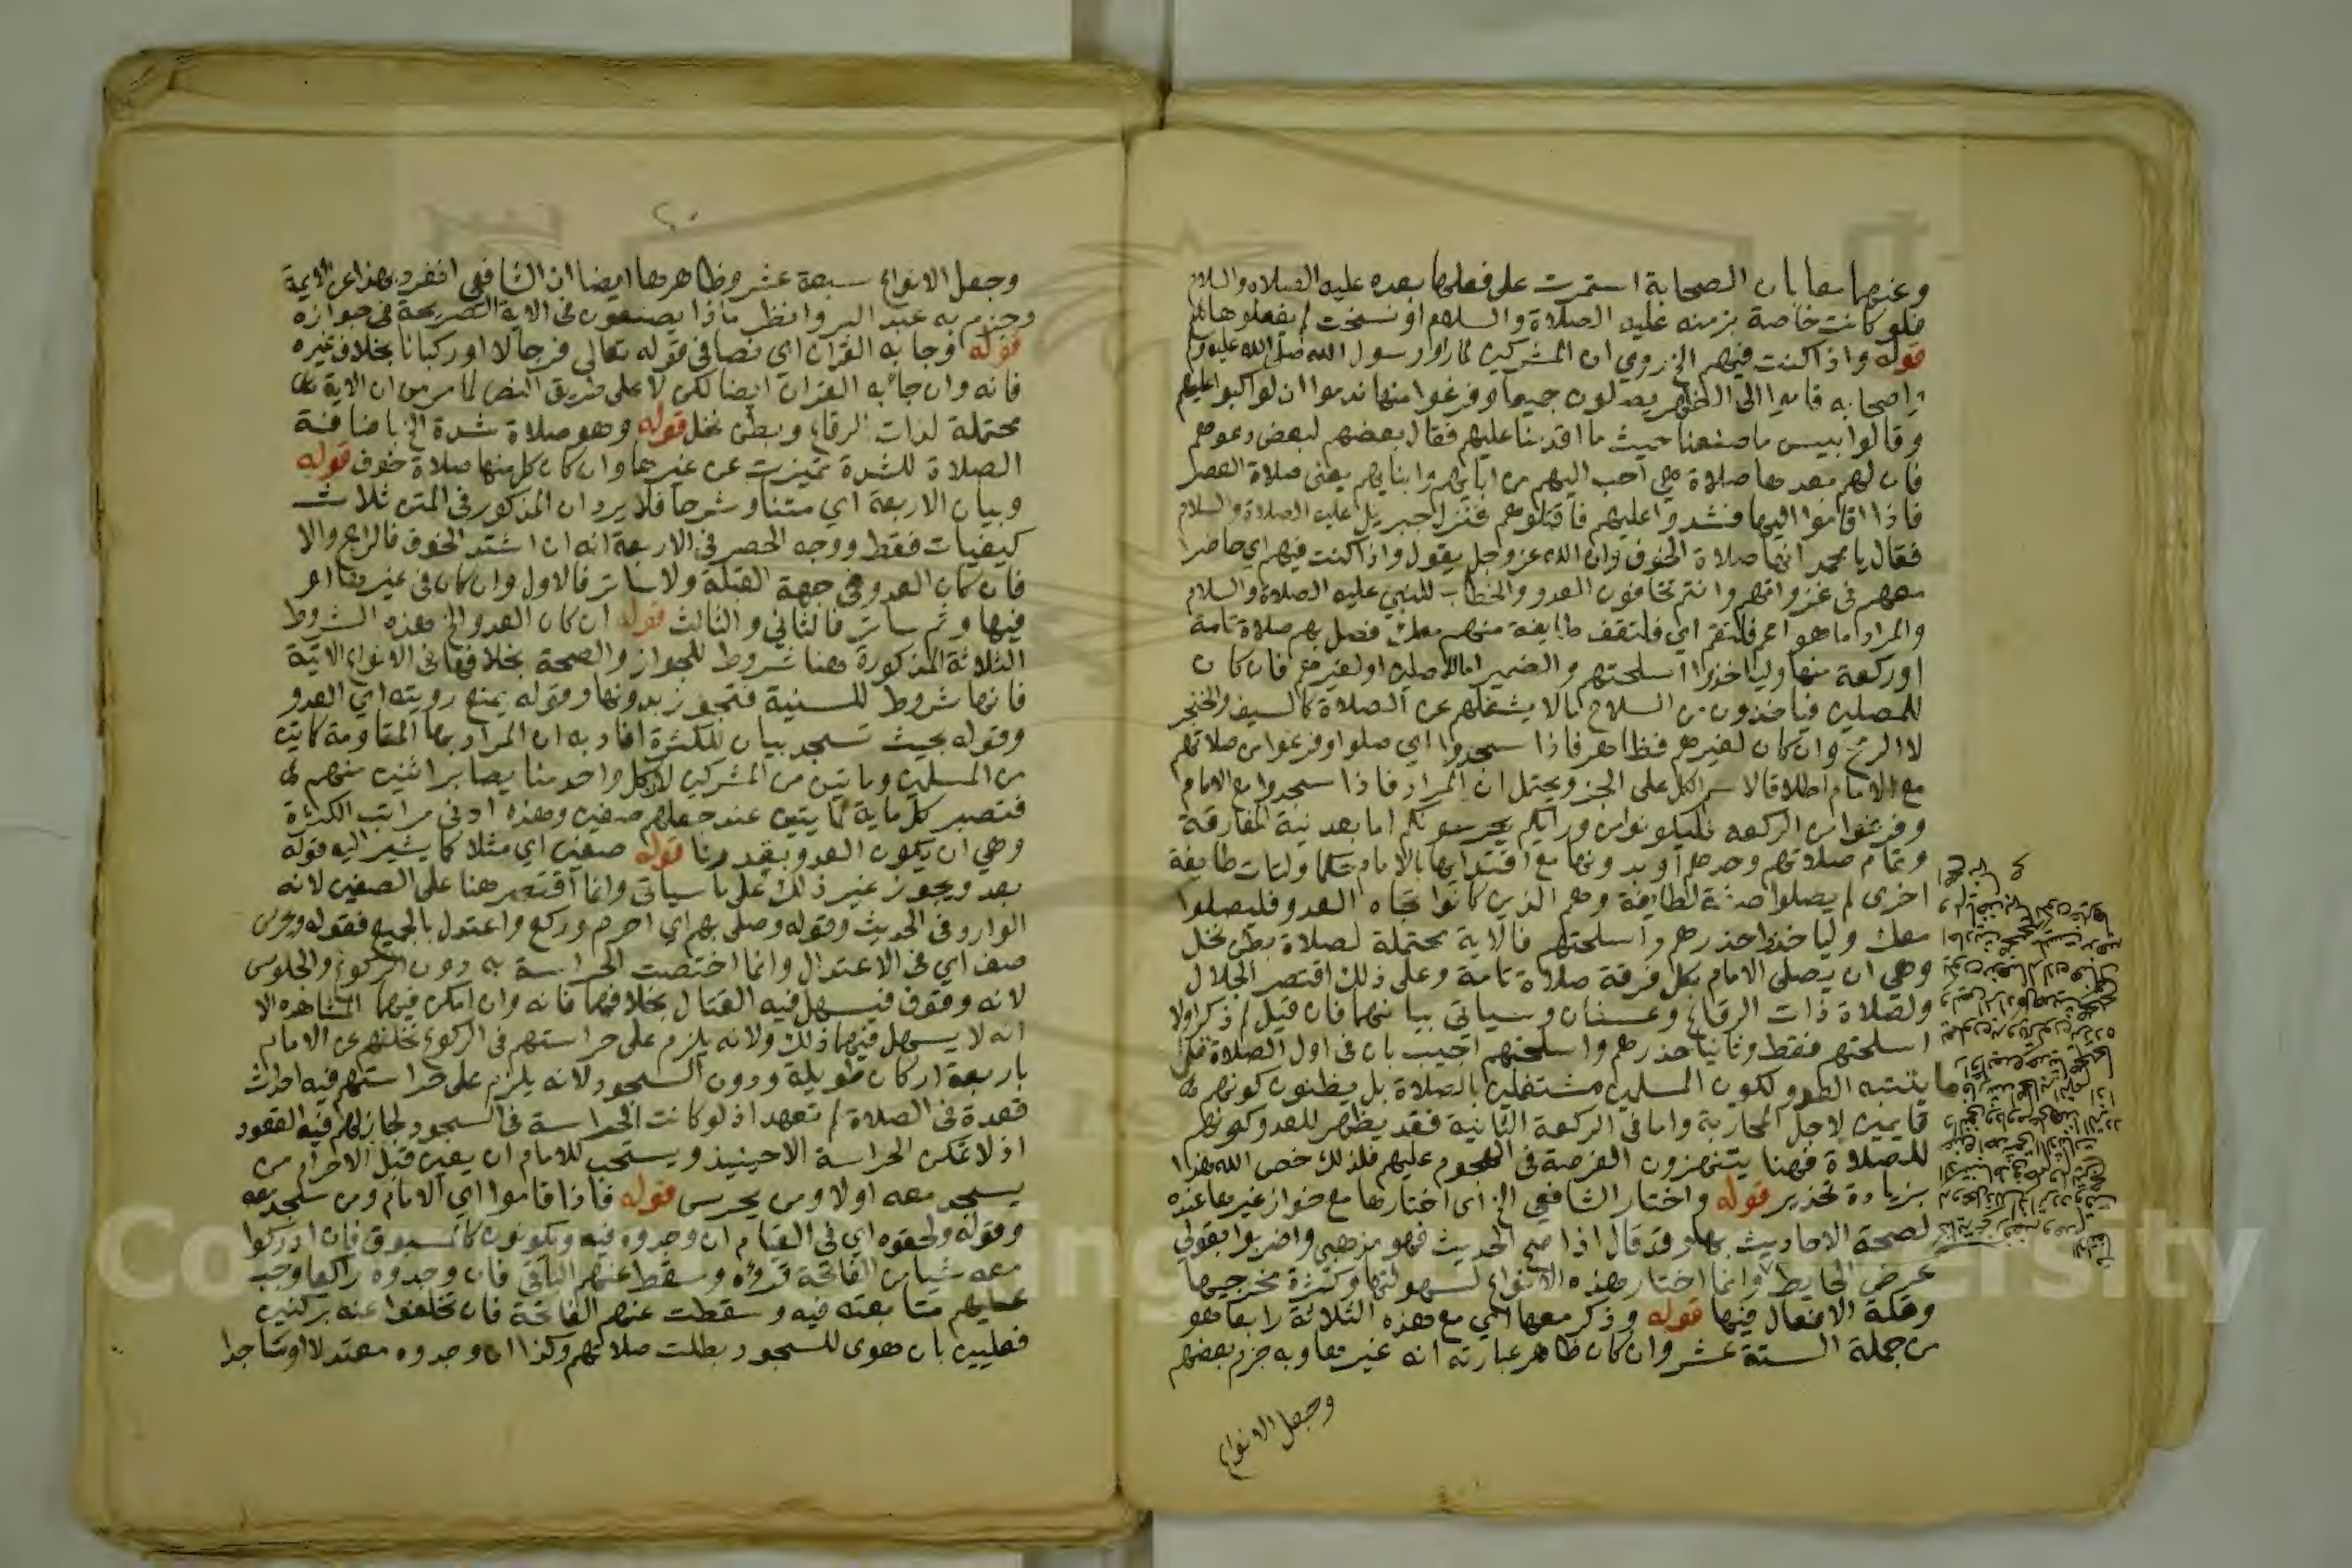 وعنهما معا بان الصحابة استمرت على فعلها بعده عليه الصلاه والسلام
فلو كانت خاصة بزمنه عليه الصلاة والسلام او نسخت لم يفعلوها
قوله واذا كنت فيهم الخ روي ان المشركين لما راوا رسول الله صلى الله عليه وسلم
واصحابه قاموا الى الظهر يصلون جميعا وفرغوا منها ندموا ان لو اكبوا عليهم
وقالوا بيس ما صنعنا حيث ما اقدمنا عليهم فقال بعضهم لبعض دعوهم
فان لهم بعدها صلاة هي احب اليهم من ابايهم وابنايهم يعنى صلاة العصر
فاذا اقاموا اليها فشدوا عليهم فاقتلوهم فنزل جبريل عليه الصلاة والسلام
فقال يا محمد انها صلاة الخوف وان الله عز وجل يقول واذا كنت فيهم اي حاضرا
معهم في غزواتهم وانتم تخافون العدو والخطاب للنبي عليه الصلاة والسلام
والمراد ما هو اعم فلتقم اي فلتقف طايفة منهم معك فصل بهم صلاة تامة
او ركعة منها ولياخذوا اسلحتهم والضمير اما للمصلين او لغيرهم فان كان
للمصلين فياخذون من السلاح ما لا يشغلهم عن الصلاة كالسيف والخنجر
لا الرمح وان كان لغيرهم فظاهر فاذا سجدوا اي صلوا وفرغوا من صلاتهم
مع الامام اطلاقا لاسم الكل على الجز ويحتمل ان المراد فاذا سجدوا مع الامام
وفرغوا من الركعه فليكونوا من ورايكم يحرسونكم اما بعد نية المفارقة
وتمام صلاتهم وحدهم او بدونها مع اقتدايها بالامام حكما ولتات طايفة
اخرى لم يصلوا صفة لطايفة وهم الذين كانوا تجاه العدو فليصلوا
معك ولياخذوا حذرهم واسلحتهم فالاية محتملة لصلاة بطن نخل
وهي ان يصلى الامام بكل فرقة صلاة تامة وعلى ذلك اقتصر الجلال
ولصلاة ذات الرقاع وعسفان وسياتي بيانهما فان قيل لم ذكر اولا
اسلحتهم فقط وثانيا حذرهم واسلحتهم اجيب بان في اول الصلاة قلما
ما يتنبه العدو لكون المسلمين مشتغلين بالصلاة بل يظنون كونهم
قايمين لاجل المحاربة واما في الركعة الثانية فقد يظهر للعدو كونهم
للصلاة فهنا يتنهزون الفرصة في الهجوم عليهم فلذلك خص الله هذا
بزيادة تحذير قوله واختار الشافعي الخ اي اختارها مع جواز غيرها عنده
لصحة الاحاديث بها وقد قال اذا صح الحديث فهو مذهبي واضربوا بقولي
عرض الحايط وانما اختار هذه الانواع لسهولتها وكثرة مخرجيها
وقلة الافعال فيها قوله وذكر معها اي مع هذه الثلاثة رابعا هو
من جملة الستة عشر وان كان ظاهر عبارته انه غيرها وبه جزم بعضهم
وجعل الانواع
وجعل الانواع سبعة عشر وظاهرها ايضا ان الشافعي انفرد بهذا عن الايمة
وجزم به عبد البر وانظر ماذا يصنعون في الاية الصريحة في جوازه
قوله وجا به القران اي نصا في قوله تعالى فرجالا او ركبانا بخلاف غيره
فانه وان جا به القران ايضا لكن لا على طريق النص لما مر من ان الاية
محتملة لذات الرقاع وبطن نخل قوله وهو صلاة شدة الخ باضافنة
الصلاة للشدة تميزت عن غيرها وان كان كل منها صلاة خوف قوله
وبيان الاربعة اي متنا وشرحا فلا يرد ان المذكور في المتن ثلاث
كيفيات فقط ووجه الحصر في الاربعة انه ان اشتد الخوف فالرابع والا
فان كان العدو في جهة القبلة ولا ساتر فالاول وان كان في غيرها او
فيها وثم ساتر فالثاني والثالث قوله ان كان العدو الخ هذه الشروط
الثلاثة المذكورة هنا شروط للجواز والصحة بخلافها في الانواع الاتية
فانها شروط للسنية فتجوز بدونها وقوله يمنع رويته اي العدو
وقوله بحيث تسجد بيان للكثرة افاد به ان المراد بها المقاومة كمايتين
من المسلمين ومايتين من المشركين لان كل واحد منا يصابر اثنين منهم
فتصير كل ماية لمايتين عند جعلهم صفين وهذه ادنى مراتب الكثرة
وهي ان يكون العدو بقدرنا قوله صفين اي مثلا كما يشير اليه قوله
بعد ويجوز غير ذلك على ما سياتي وانما اقتصر هنا على الصفين لانه
الوارد في الحديث وقوله وصلى بهم اي احرم وركع واعتدل بالجميع فقوله ويحرس
صف اي في الاعتدال وانما اختصت الحراسة به دون الركوع والجلوس
لانه وقوف فيسهل فيه القتال بخلافهما فانه وان امكن فيهما المشاهده الا
انه لا يسهل فيهما ذلك ولانه يلزم على حراستهم في الركوع تخلفهم عن الامام
باربعة اركان طويلة ودون السجود لانه يلزم على حراستهم فيه احداث
قعدة في الصلاة لم تعهد اذ لو كانت الحراسة في السجود لجاز لهم فيه القعود
اذ لا تمكن الحراسة الا حينيذ ويستحب للامام ان يعين قبل الاحرام من
يسجد معه اولا ومن يحرس قوله فاذا قاموا اي الامام ومن سجد معه
وقوله ولحقوه اي في القيام ان وجدوه فيه ويكونون كالمسبوق فان ادركوا
معه شيا من الفاتحة قرؤه وسقط عنهم الباقي فان وجدوه راكعا وجب
عليهم متابعته فيه وسقطت عنهم الفاتحة فان تخلفوا عنه بركنين
فعليين بان هوى للسجود بطلت صلاتهم وكذا ان وجدوه معتدلا او ساجدا